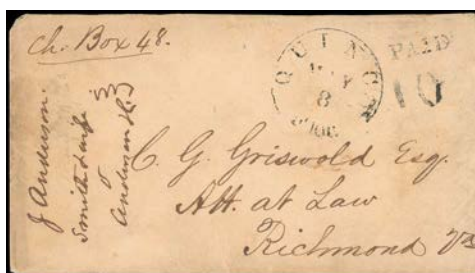 Ch. Box 48.
QUINCY
MAY
8
PAID
10
J Anderson.
Smith & wife
v
Anderson
C. G. Griswold Esq.
Att. at Law
Richmond Va